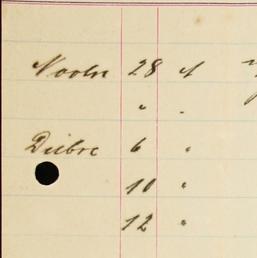 Novbre 28
" "
Dicbre 6 "
10 "
12 "